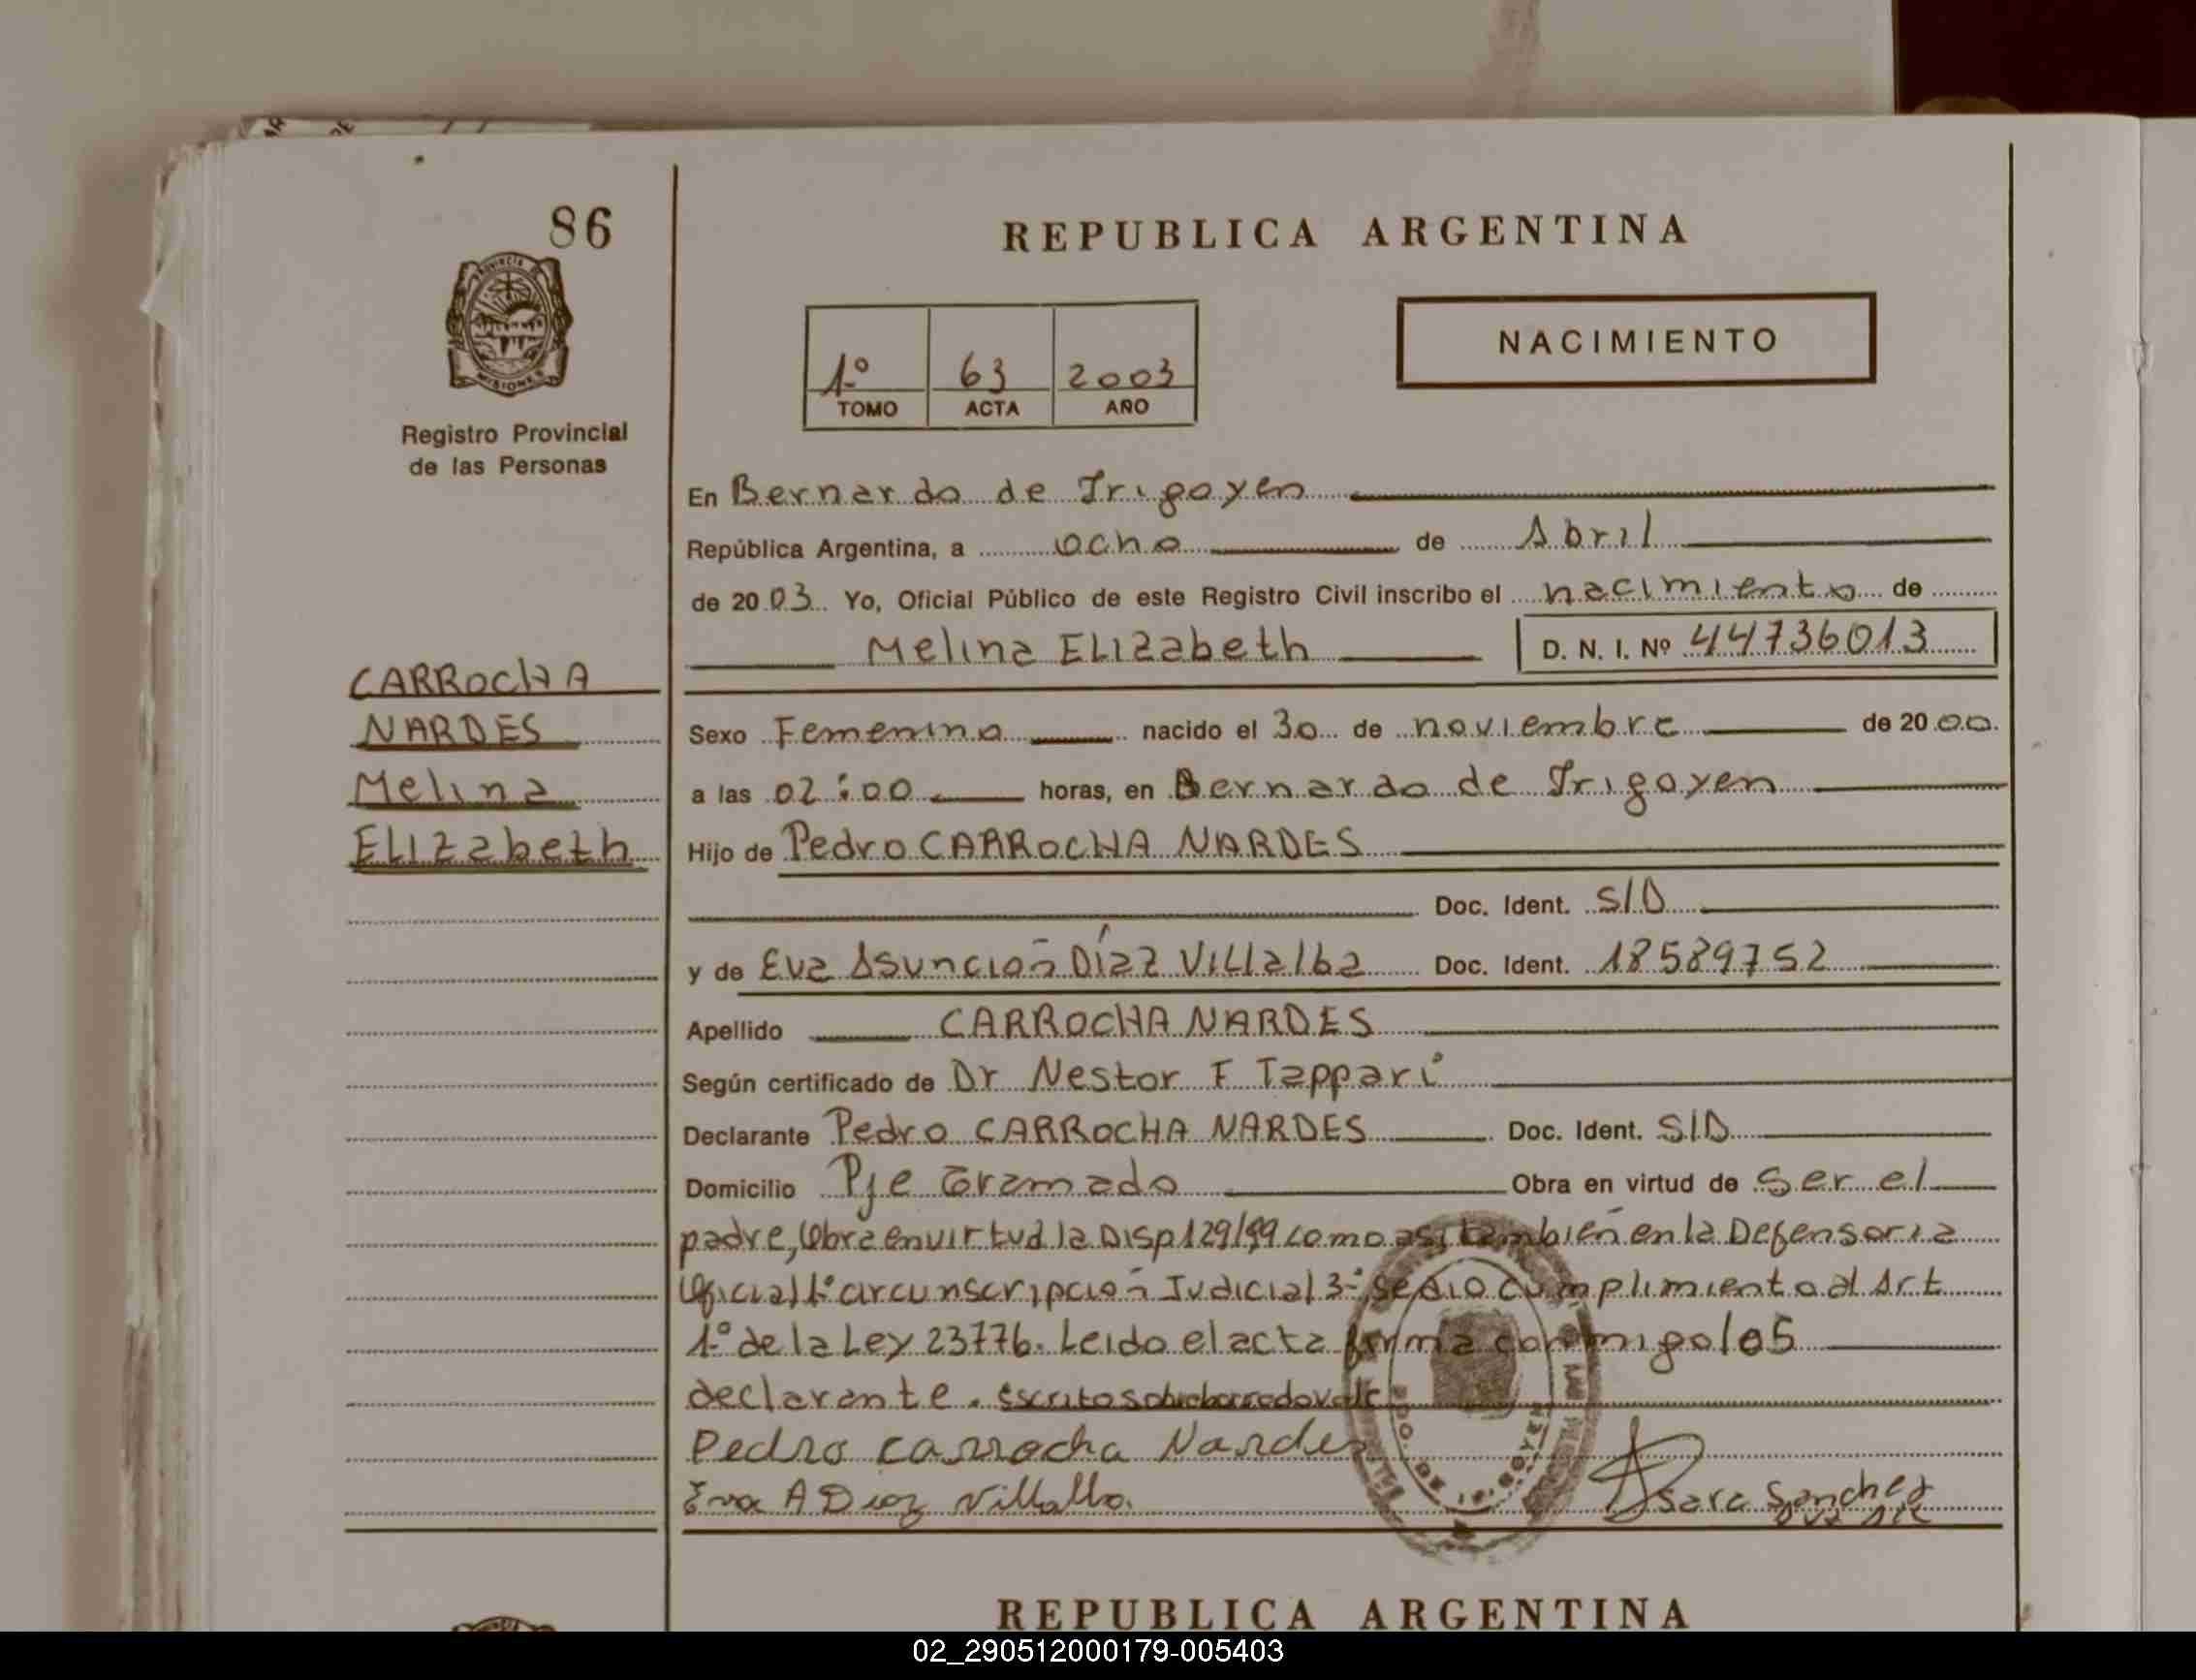 86
PROVINCIA DE
MISIONES
Registro Provincial
de las Personas
REPUBLICA ARGENTINA
NACIMIENTO
1º 63 2003
TOMO ACTA AÑO
En Bernardo de Irigoyen
República Argentina, a ocho de Abril
de 2003 Yo, Oficial Público de este Registro Civil inscribo el nacimiento de
Melina ELIZabeth D. N. I. Nº 44736013
CARROCHA
NARDES
Melina
ELIZabeth
Sexo Femenino nacido el 30 de noviembre de 2000.
a las 02:00 horas, en Bernardo de Irigoyen
Hijo de Pedro CARROCHA NARDES
Doc. Ident. S/D
y de Eva Asunción Díaz Villalba Doc. Ident. 18589752
Apellido CARROCHA NARDES
Según certificado de Dr Nestor F Tappari
Declarante Pedro CARROCHA NARDES Doc. Ident. S/D
Domicilio Pje Gramado Obra en virtud de Ser el
padre, Obra en virtud la Disp 129/99 como asi también en la Defensoria
Oficial 1º circunscripción Judicial 3º se dio cumplimiento al Art
1º de la Ley 23776. Leido el acta firma conmigo los
declarante. escrito sobreborrado vale
Pedro Carrocha Nardes
Eva A Diaz Villalba.
Sara Sanchez
BDO. DE IRIGOYEN
REPUBLICA ARGENTINA
02_290512000179-005403